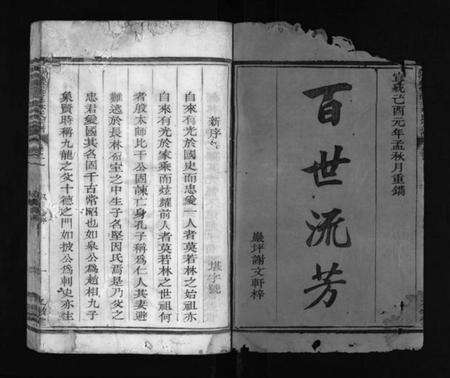 宣統己酉元年孟秋月重鐫
百世流芳
巖坪謝文軒梓
新序
自來有光於國史而忠愛一人者莫若林之始祖亦
自來有光於家乘而炫耀前人者莫若林之世祖何
者殷太師比干公因諫亡身孔子稱為仁人其妻避
難逃於長林石室之中生子名堅因氏焉是乃父之
忠君愛國其名固千古常昭也如皋公為趙相九子
象賢時稱九龍之父十德之門如披公為刺史亦生